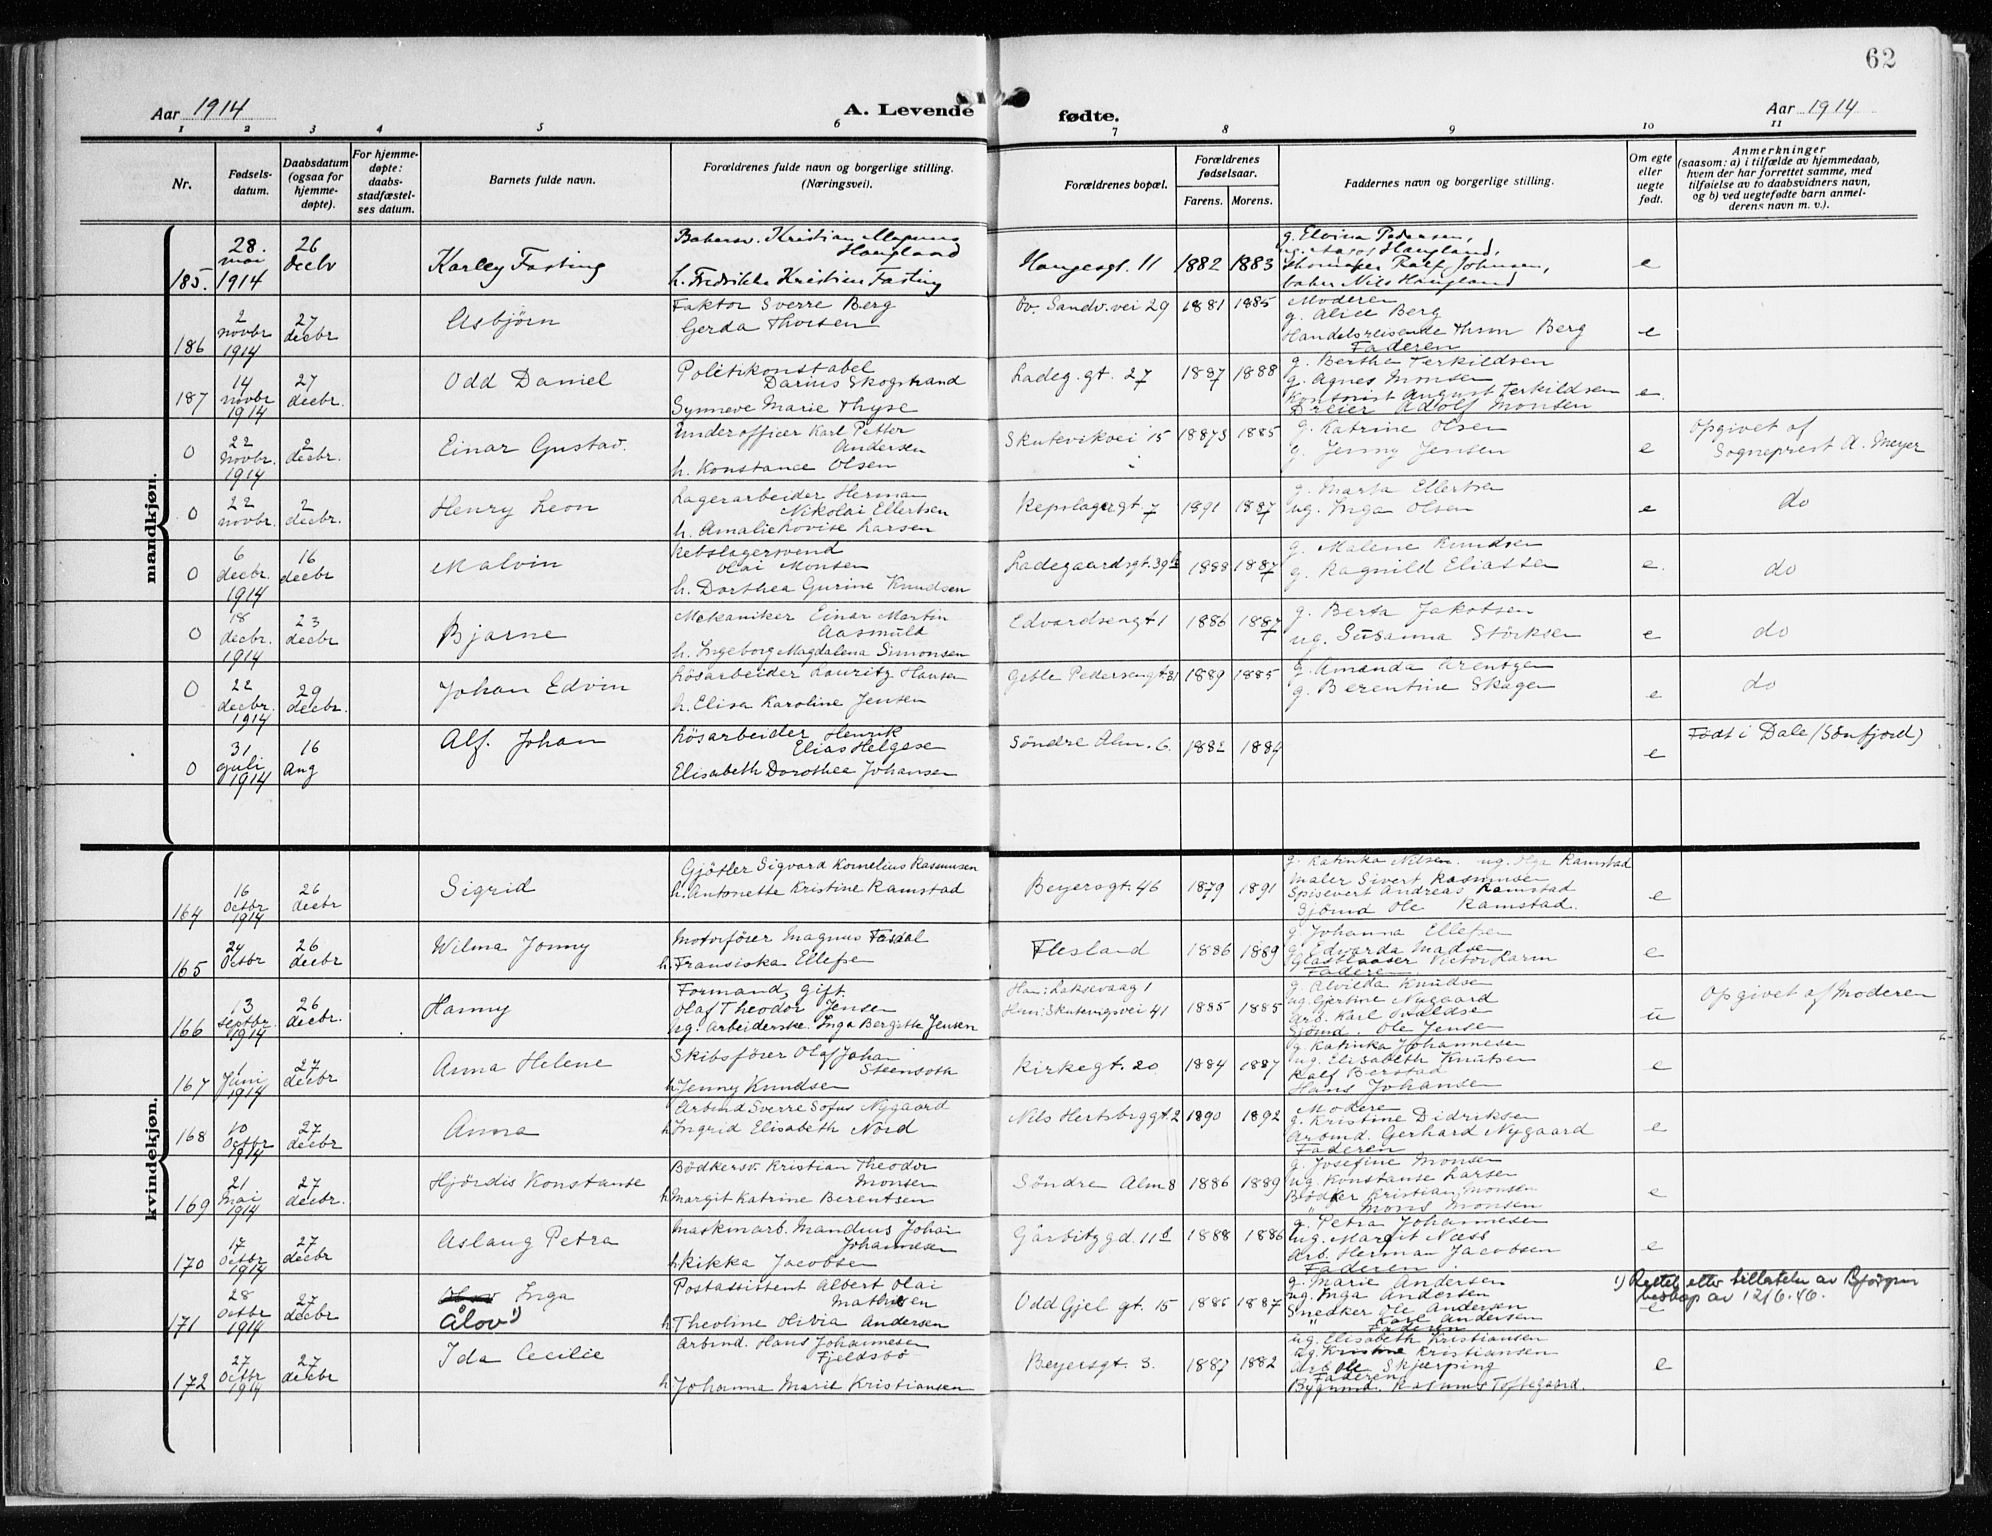 62
Aar 1914 A. Levende fødte. Aar 1914
1 2 3 4 5 6 7 8 9 10 11
Nr. Fødselsdatum. Daabsdatum (ogsaa for hjemmedøpte). For hjemmedøpte: daabsstadfæstelses datum. Barnets fulde navn. Forældrenes fulde navn og borgerlige stilling. (Næringsvei). Forældrenes bopæl. Forældrenes fødselsaar. Farens. Morens. Faddernes navn og borgerlige stilling. Om egte eller uegte født. Anmerkninger (saasom: a) i tilfælde av hjemmedaab, hvem der har forrettet samme, med tilføielse av to daabsvidners navn, og b) ved uegtefødte barn anmelderens navn m. v.).
mandkjøn.
185. 28. mai 1914 26 decbr Karley Fasting
Bakersv. Kristian Magnus Haugland
h. Fredrikke Kristine Fasting
Haugesgt. 11 1882 1883
g. Elvina Pedersen,
ug. Aagot Haugland,
Ralf Johnsen,
baker Nils Haugland
e
186 2 novbr 1914 27 decbr Asbjørn
Faktor Sverre Berg
Gerda Thorsen
Øv. Sandv.vei 29 1881 1885
Moderen
g. Alice Berg
Handelsreisende Thom Berg
Faderen
e
187 14 novbr 1914 27 decbr. Odd Daniel
Politikonstabel
Darius Skogstrand
Synneve Marie Thyse
Ladeg. gt. 27 1887 1888
g. Bertha Terkildsen
g. Agnes Monsen
Kontorist August Terkildsen
Dreier Adolf Monsen
e.
0 22 novbr. 1914 2 decbr. Einar Gustav.
Underofficer Karl Petter
Andersen
h. Konstance Olsen
Skutevikvei 15 1885
g. Katrine Olsen
g. Jenny Jensen
e
Opgivet af
Sogneprest A. Meyer
0 22 novbr. 2 decbr. Henry Leon
Lagerarbeider Herman
Nikolai Ellertsen
h. Amalie Lovise Larsen
Repslagergt 7 1891 1887
g. Marta Ellertsen
ug. Inga Olsen
e
do
0 6 decbr. 1914 16 decbr Malvin
Rebslagersvend
Olai Monsen
h. Dorthea Gurine Knudsen
Ladegaardsgt. 39 b 1888 1887
g. Malene Knudsen
g. Ragnild Eliassen
e.
do
0 18 decbr. 1914 23 decbr Bjarne
Mekaniker Einar Martin
Aasmuld
h. Ingeborg Magdalena Simonsen
Edvardsengt 1 1886 1887
g. Berta Jakobsen
ug. Susanna Störksen
e
do
0 22 decbr. 1914 29 decbr. Johan Edvin
Løsarbeider Lauritz Hansen
h. Elisa Karoline Jensen
Geble Pedersengt 31 1889 1885
g. Amanda Arentzen
g. Berentine Skagen
e
do
0 31 juli 1914 16 Aug Alf. Johan
Løsarbeider Henrik
Elias Helgese
Elisabeth Dorothea Johansen
Søndre Alm. 6. 1882 1884
e
Født i Dale (Sønfjord)
kvindekjøn.
164 16 Octbr 1914 26 decbr Sigrid
Gjötler Sigvard Kornelius Rasmussen
h. Antonette Kristine Ramstad
Beyersgt. 46 1879 1891
g. Katinka Nilsen. ug. Olga Ramstad
Maler Sivert Rasmussen
Spisevert Andreas Ramstad
Sjömd Ole Ramstad.
e
165 24 Octbr 26 decbr Wilma Jonny
Motorfører Magnus Fasdal
h. Fransiska Ellefse
Flesland 1886 1889
g. Johanna Ellefsen
g. Edvarda Madsen
Glasblaaser Victor Karm
Faderen.
e
166 13 septbr. 1914 26 decbr. Hanny
Formand, gift.
Olaf Theodor Jensen
ug. Arbeiderske. Inga Bergitte Jensen
Han: Laksevaag 1
Hun: Skutevigsvei 41 1885 1885
g. Alvilda Knudsen
ug. Gjertine Nygaard
arb. Karl
Sjömd. Ole Jensen
u
Opgivet af Moderen
167 1 Juni 1914 27 decbr Anna Helene
Skibsfører Olaf Johan
Steensoth
h. Jenny Knudsen
Kirkegt. 20 1884 1887
g. Katinka Johannesen
ug. Elisabeth Knutsen
Ralf Berstad
Hans Johansen
e
168 10 Octbr 1914 27 decbr Anna
Arbmd Sverre Sofus Nygaard
h. Ingrid Elisabeth Nord
Nils Hertsbrggt. 2 1890 1892
Modere
g. Kristine Didriksen
Arbmd. Gerhard Nygaard
Faderen
e
169 21 Mai 1914 27 decbr. Hjördis Konstanse
Bödkersv. Kristian Theodor
Monsen
h. Margit Katrine Berentsen
Søndre Alm 8 1886 1889
g. Josefine Monsen
ug. Konstanse Larsen
Bødker Kristian Monsen
" Mons Monsen
e
170 17 Octbr 1914 27 decbr Aslaug Petra
Maskinarb. Mandius Johan
Johannesen
h. Rikka Jacobsen
Gårbitzgd. 11 b 1888 1886
g. Petra Johannesen
ug. Margit Næss
Arb. Herman Jacobsen
Faderen.
e
171 28 Octbr 1914 27 decbr Inga
Ålov 1)
Postassistent Albert Olai
Mathisen
h. Theoline Olivia Andersen
Odd Gjel gt. 15 1885 1887
g. Marie Andersen
ug. Inga Andersen
Snedker Ole Andersen
" Karl Andersen
Faderen
e
1) Rettet etter tillatelse av Bjørgvin
biskop av 12/6.46.
172 27 Octbr 1914 27 decbr Ida Cecilie
Arbmd. Hans Johannesen
Fjeldsbø
h. Johanna Marie Kristiansen
Beyersgt. 3. 1887 1882
ug. Elisabeth Kristiansen
ug. Kristine Kristiansen
Arb Ole Skjærping
Faderen
Bygmd. Rasmus Toftegaard.
e